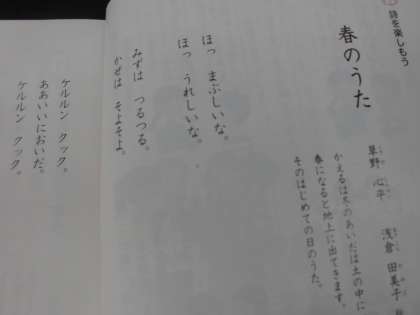 詩を楽しもう
春のうた
草野 心平
浅倉 田美子
かえるは冬のあいだは土の中に
春になると地上に出てきます。
そのはじめての日のうた。
ほっ まぶしいな。
ほっ うれしいな。
みずは つるつる。
かぜは そよそよ。
ケルルン クック。
ああいいにおいだ。
ケルルン クック。